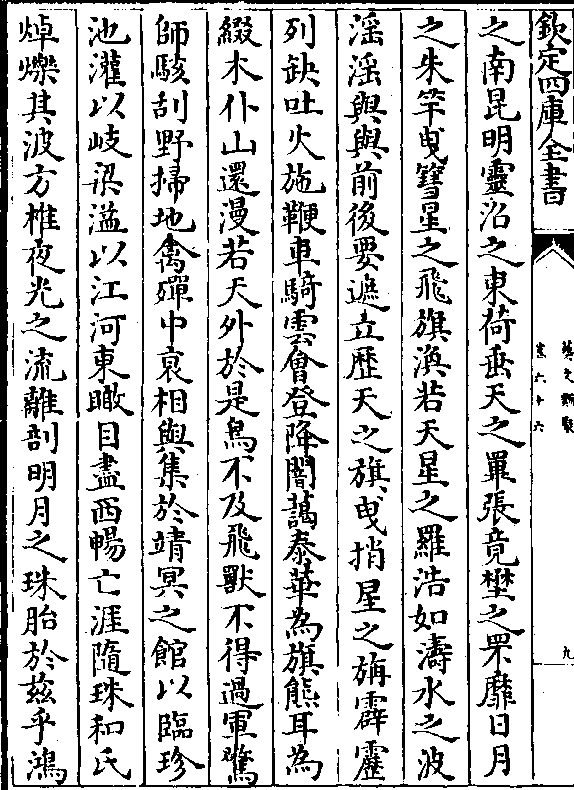 欽定四庫全書
藝文類聚
卷六十六
九
之南昆明靈沼之東荷垂天之罼張竟壄之罘靡日月
之朱竿曳彗星之飛旗渙若天星之羅浩如濤水之波
淫淫與與前後要遮立歴天之旗曳捎星之旃霹靂
列缺吐火施鞭車騎雲會登降闇藹泰華為旗熊耳為
綴木仆山還漫若天外於是鳥不及飛獸不得過軍驚
師駭刮野掃地禽殫中衰相與集於靖冥之館以臨珍
池灌以岐梁溢以江河東瞰目盡西暢亡涯隨珠和氏
焯爍其波方椎夜光之流離剖明月之珠胎於兹乎鴻